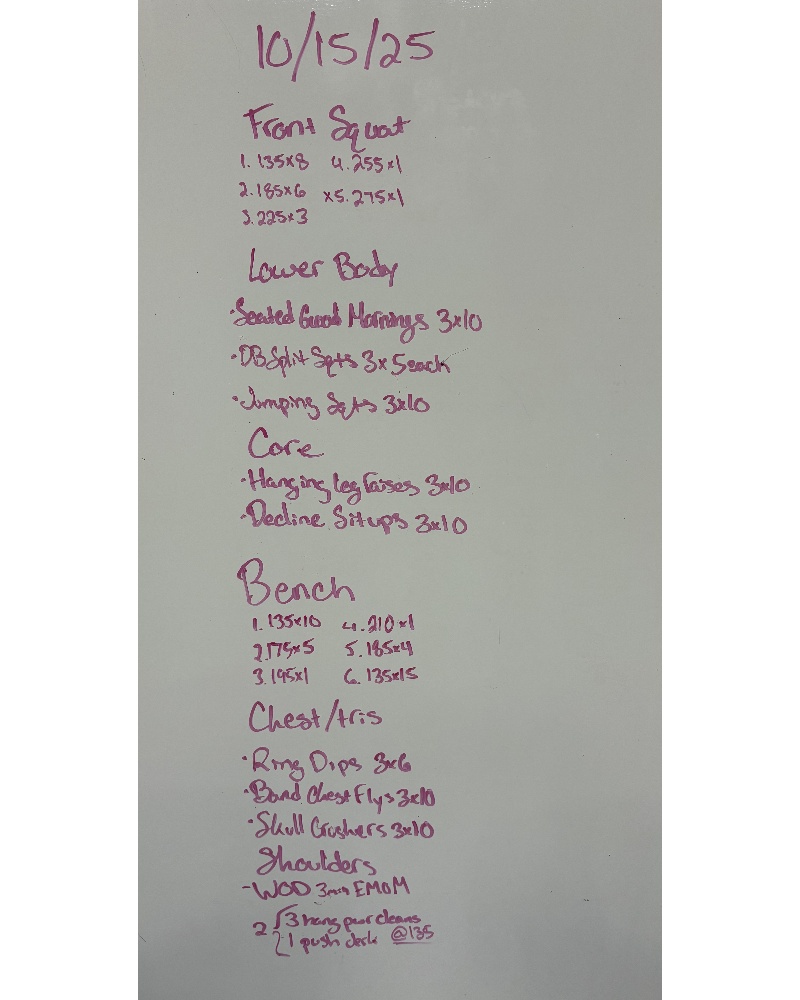 10/15/25
Front Squat
1. 135x8 4. 255x1
2. 185x6 x5. 275x1
3. 225x3
Lower Body
·Seated Good Mornings 3x10
·DB Split Sqts 3x5 each
·Jumping Sqts 3x10
Core
·Hanging Leg Raises 3x10
·Decline Situps 3x10
Bench
1. 135x10 4. 210x1
2. 175x5 5. 185x4
3. 195x1 6. 135x15
Chest/tris
·Ring Dips 3x6
·Band Chest Flys 3x10
·Skull Crushers 3x10
Shoulders
-WOD 3min EMOM
2 { 3 hang pwr cleans
1 push jerk @135